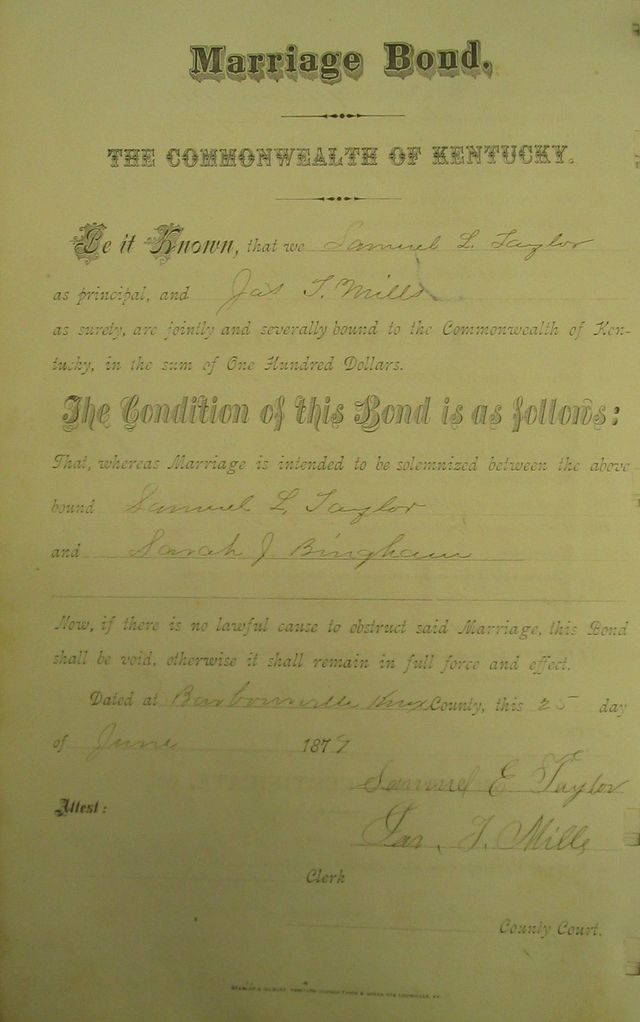 Marriage Bond.
THE COMMONWEALTH OF KENTUCKY.
Be it Known, that we Samuel L. Taylor
as principal, and Jas T. Mills
as surety, are jointly and severally bound to the Commonwealth of Ken-
tucky, in the sum of One Hundred Dollars.
The Condition of this Bond is as follows:
That, whereas Marriage is intended to be solemnized between the above
bound Samuel L Taylor
and Sarah J Bingham
Now, if there is no lawful cause to obstruct said Marriage, this Bond
shall be void, otherwise it shall remain in full force and effect.
Dated at Barbourville Knox County, this 25 day
of June 1879
Samuel E Taylor
Attest:
Jas. T. Mills
Clerk
County Court.